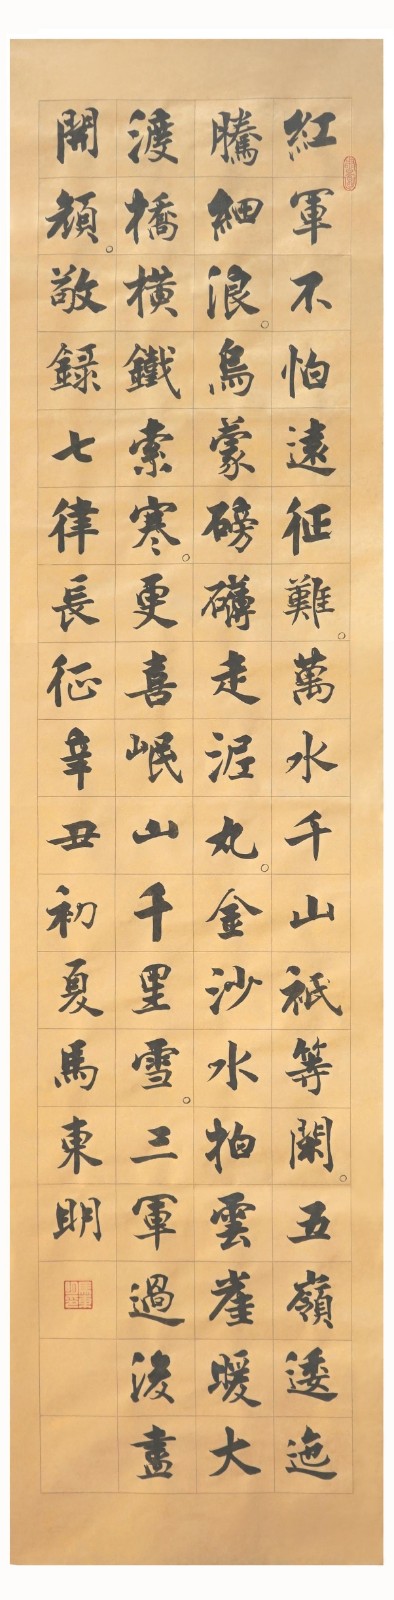 紅軍不怕遠征難。萬水千山祗等閑。五嶺逶迤
騰細浪。烏蒙磅礴走泥丸。金沙水拍雲崖暖大
渡橋横鐵索寒。更喜岷山千里雪。三軍過後盡
開顔。敬録七律長征辛丑初夏馬東明